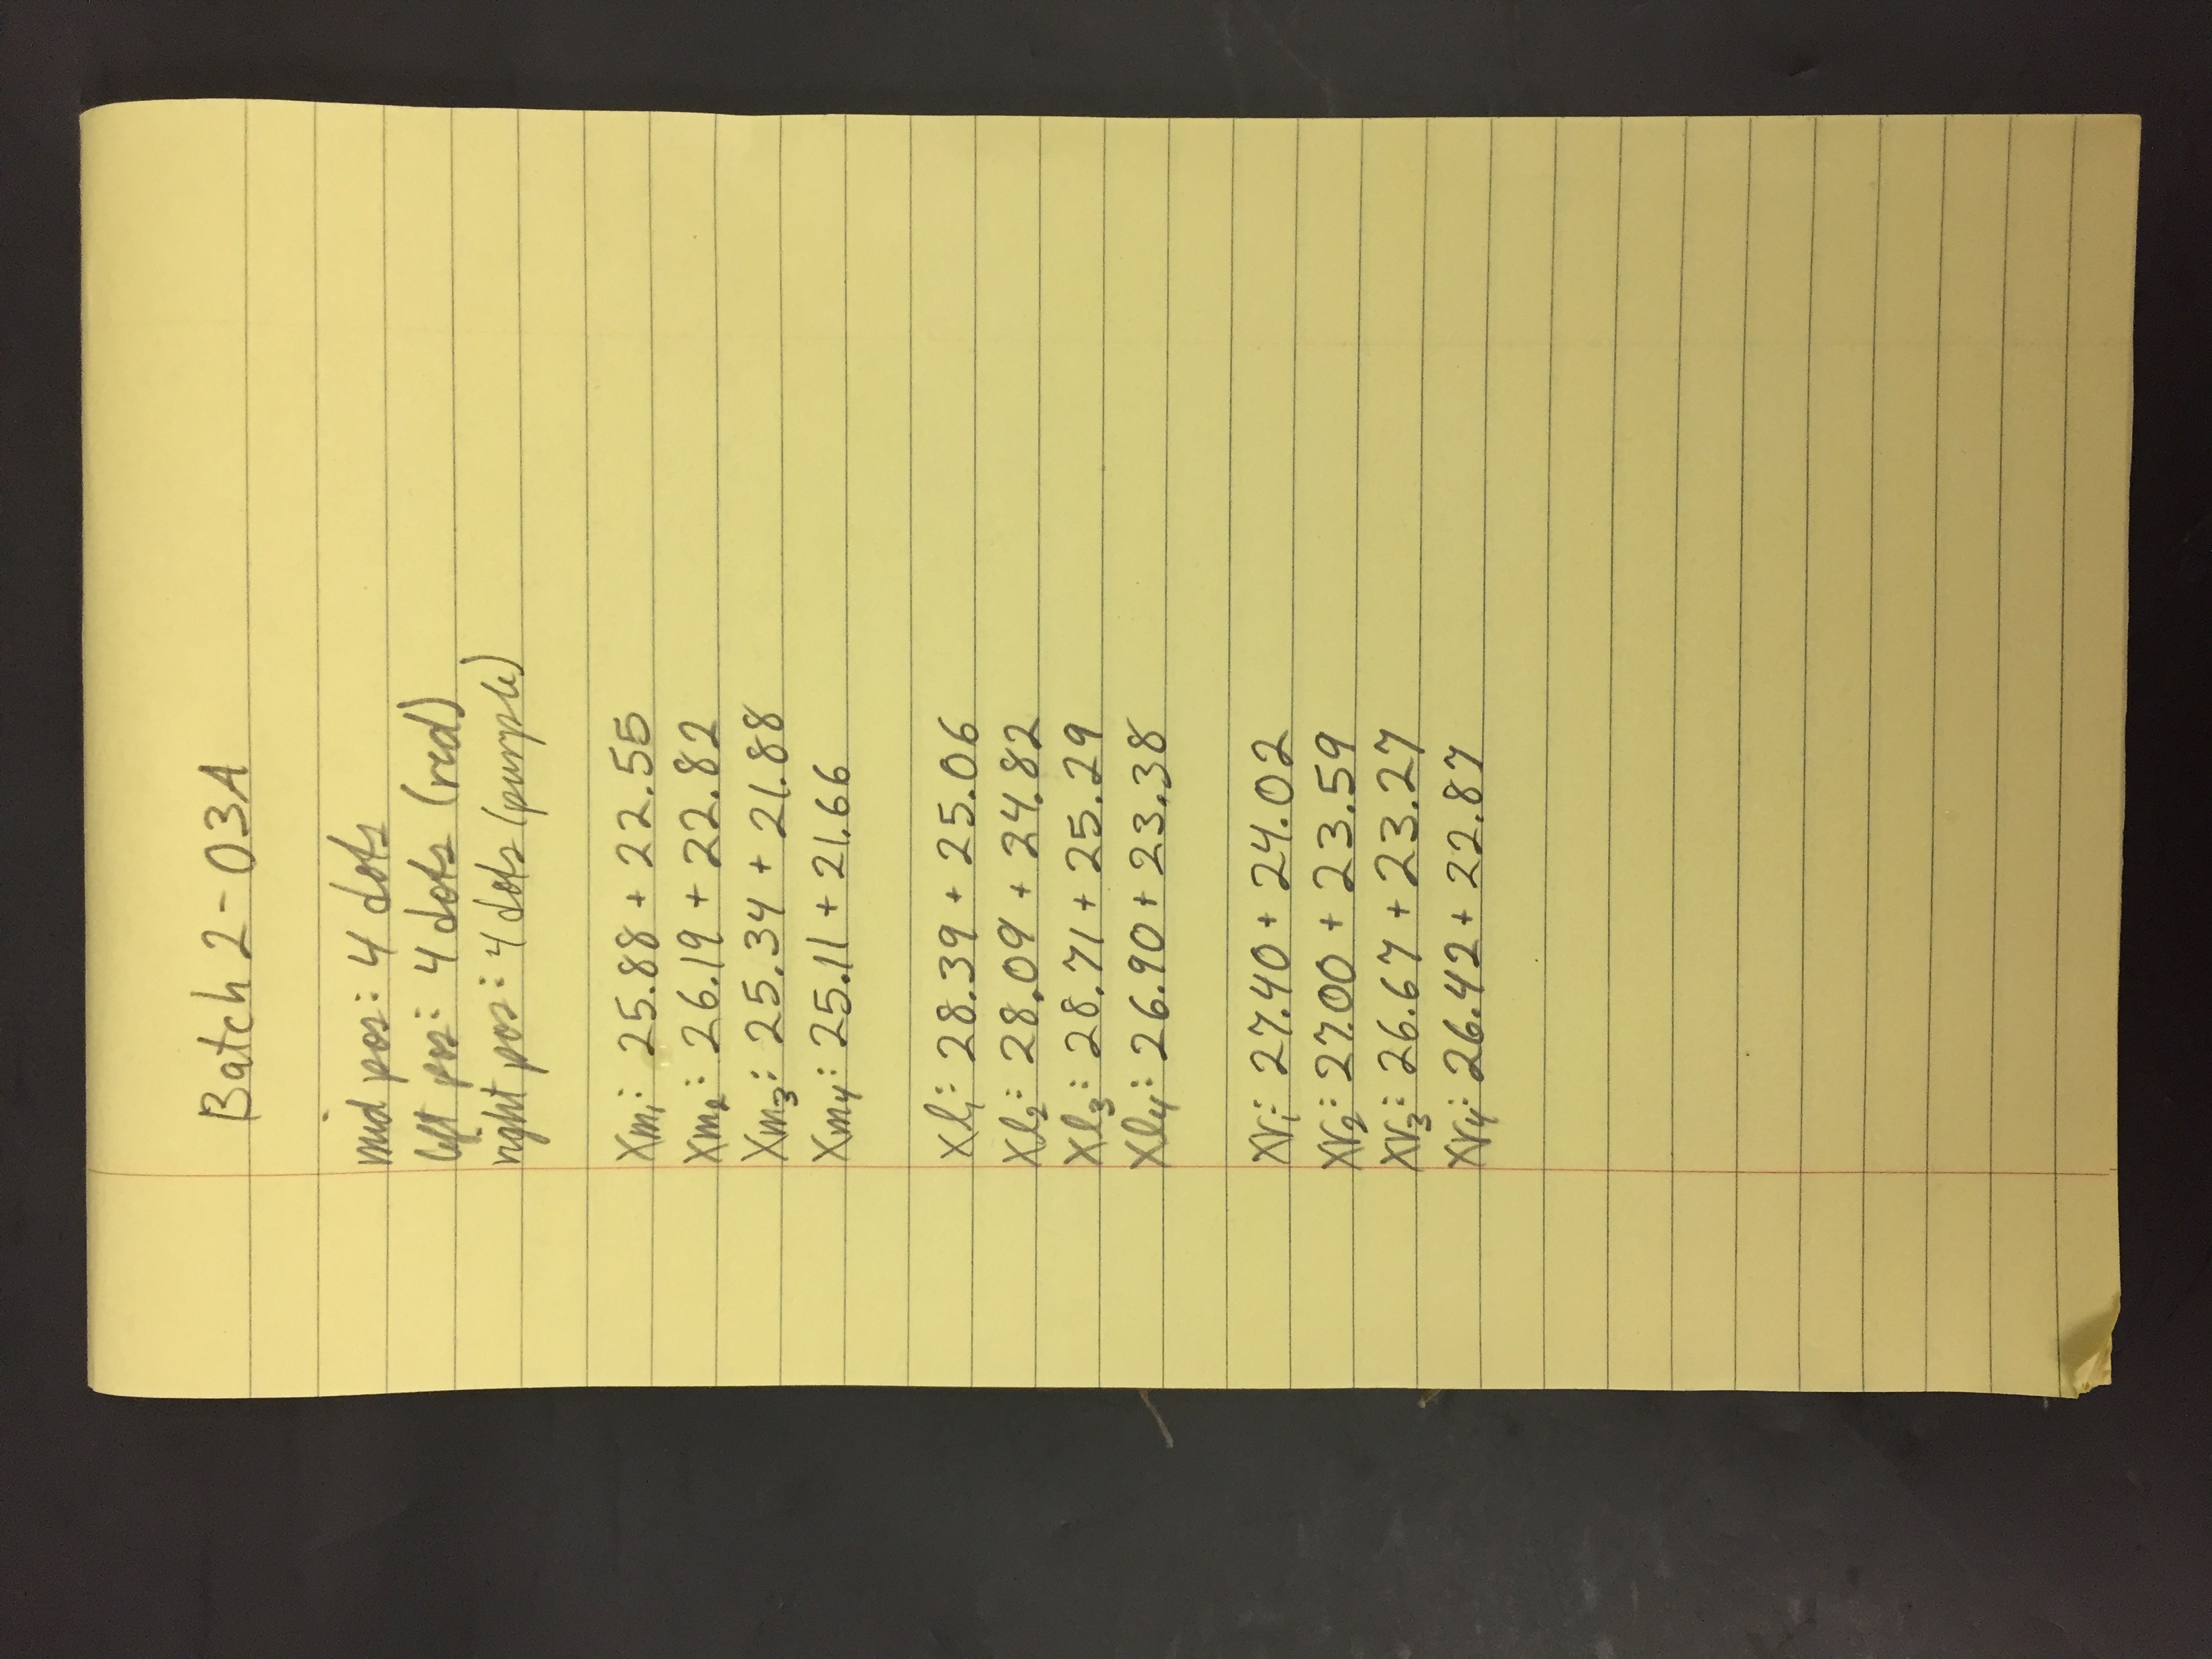 Batch 2-03A
mid pos: 4 dots
left pos: 4 dots (red)
right pos: 4 dots (purple)
Xm1: 25.88 + 22.55
Xm2: 26.19 + 22.82
Xm3: 25.34 + 21.88
Xm4: 25.11 + 21.66
Xl1: 28.39 + 25.06
Xl2: 28.09 + 24.82
Xl3: 28.71 + 25.29
Xl4: 26.90 + 23.38
Xr1: 27.40 + 24.02
Xr2: 27.00 + 23.59
Xr3: 26.67 + 23.27
Xr4: 26.42 + 22.87